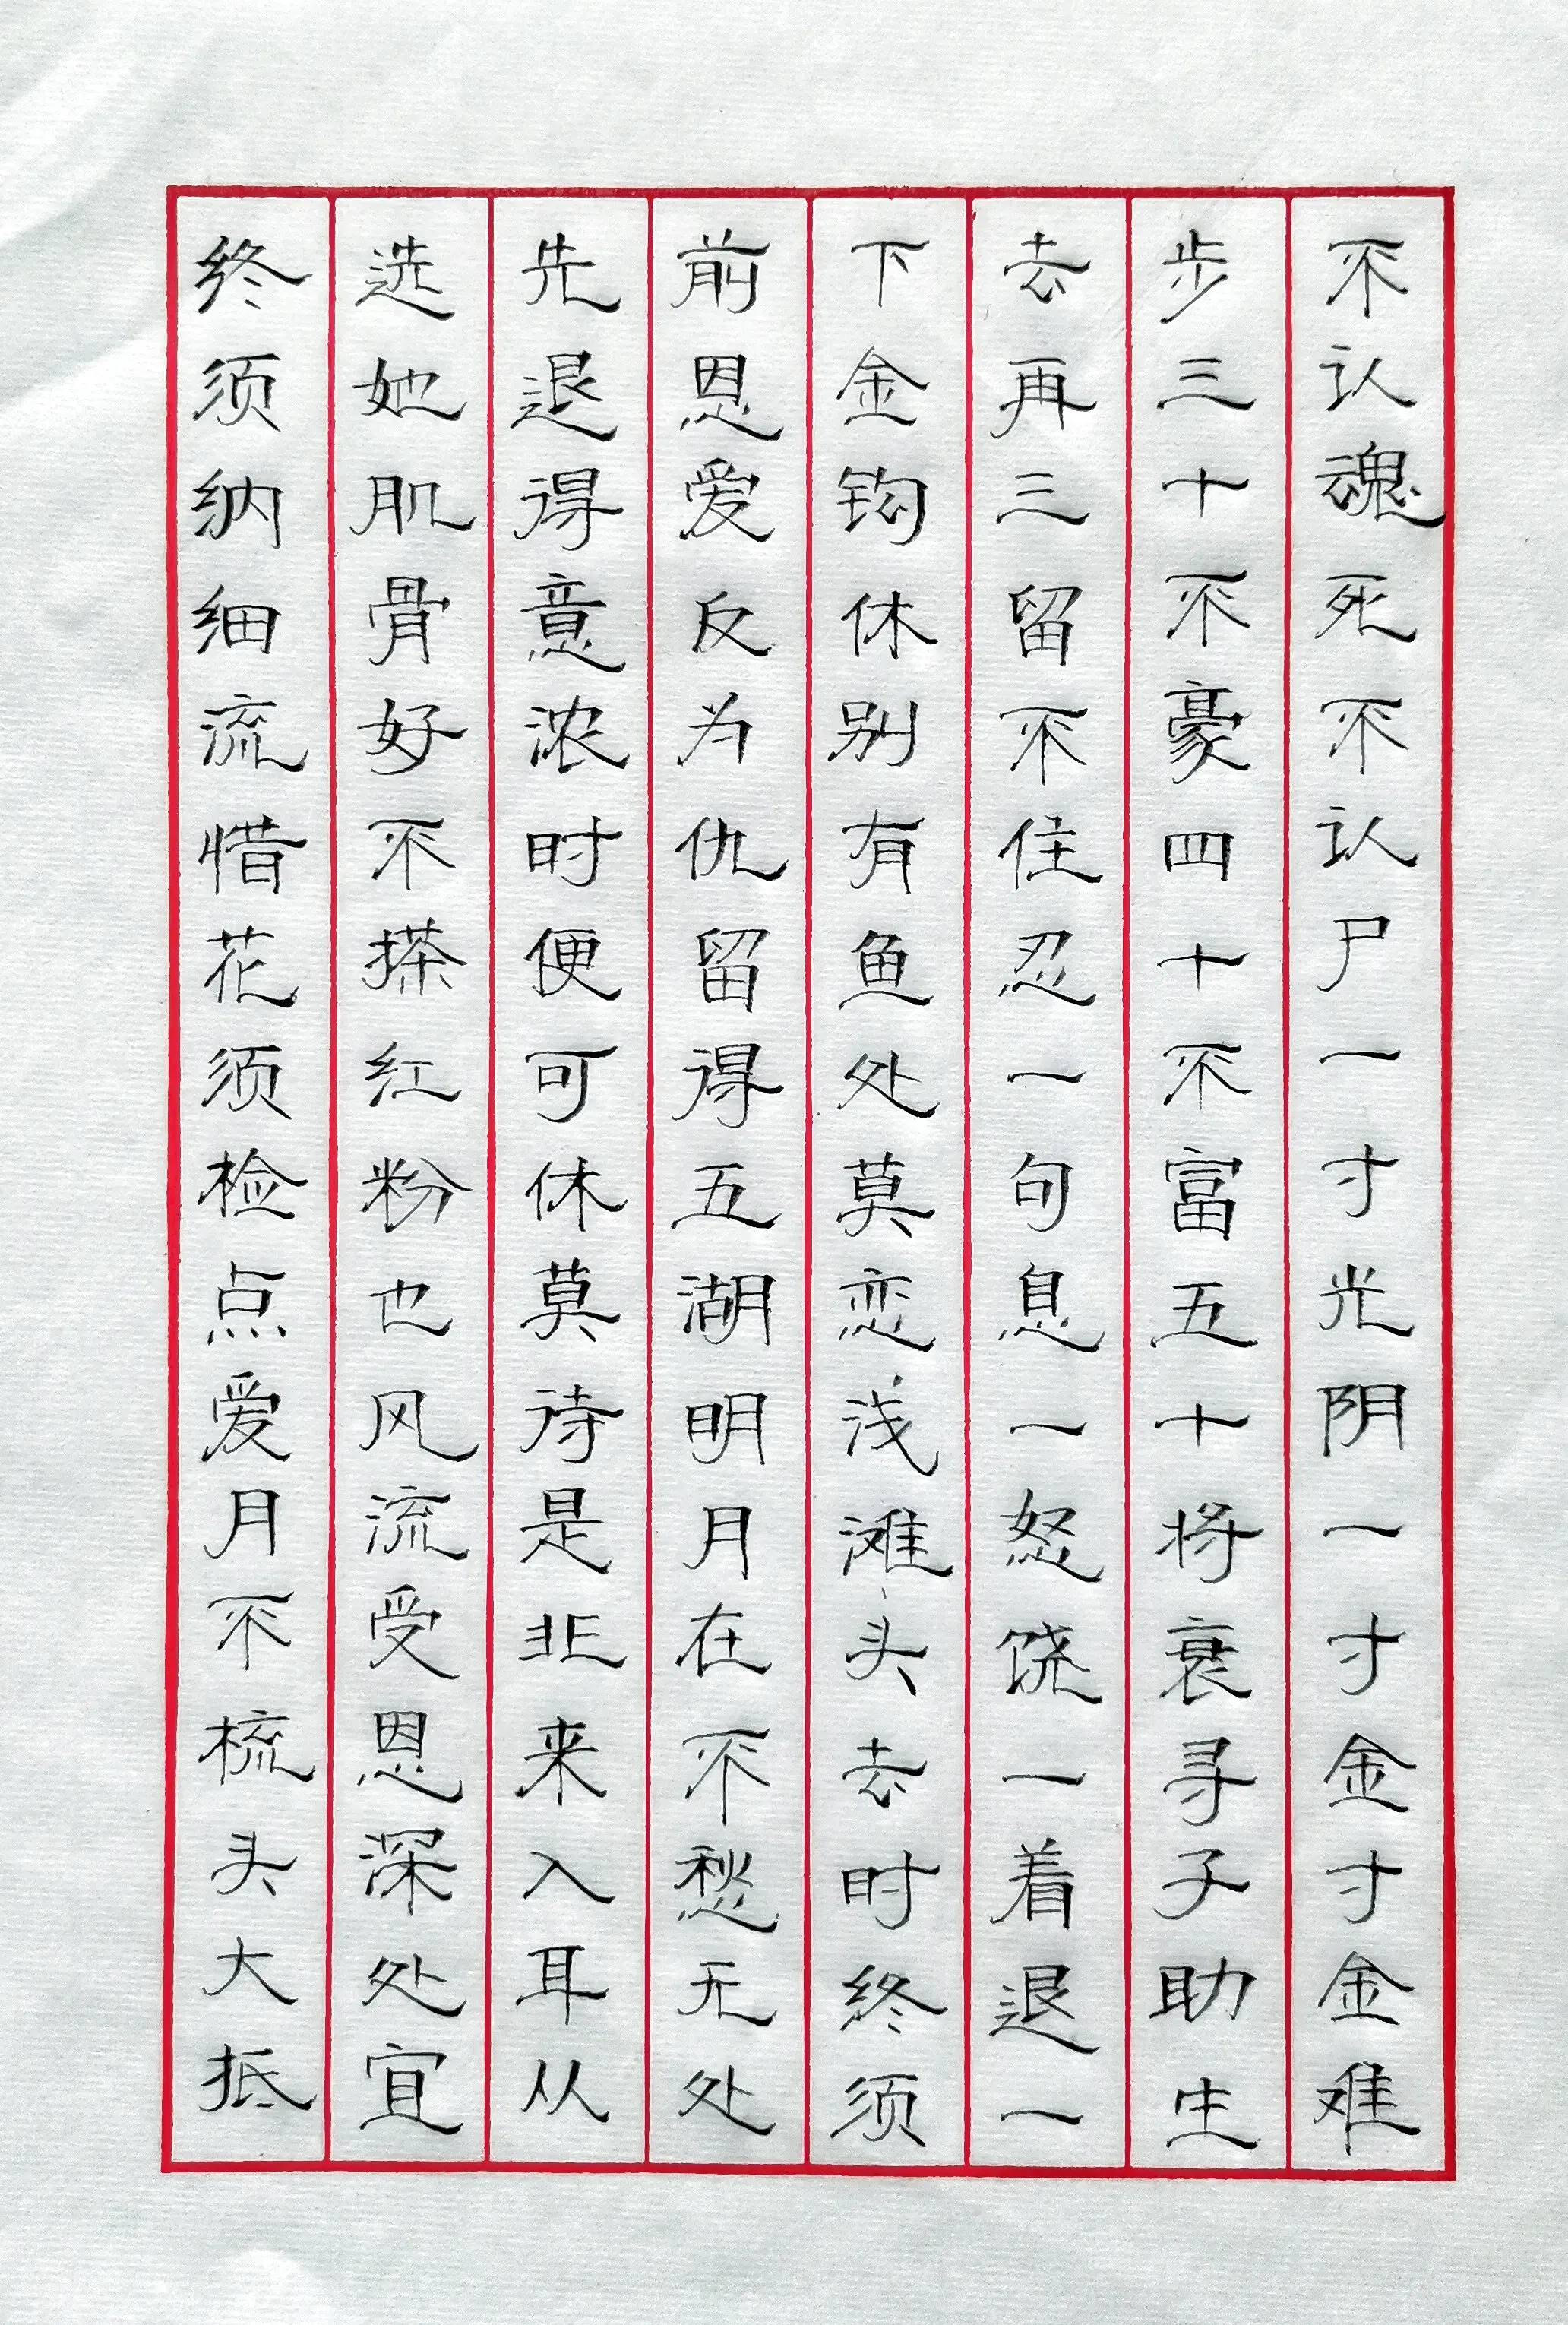 不认魂死不认尸一寸光阴一寸金寸金难
步三十不豪四十不富五十将衰寻子助生
去再三留不住忍一句息一怒饶一着退一
下金钩休别有鱼处莫恋浅滩头去时终须
前恩爱反为仇留得五湖明月在不愁无处
先退得意浓时便可休莫待是非来入耳从
选她肌骨好不搽红粉也风流受恩深处宜
终须纳细流惜花须检点爱月不梳头大抵